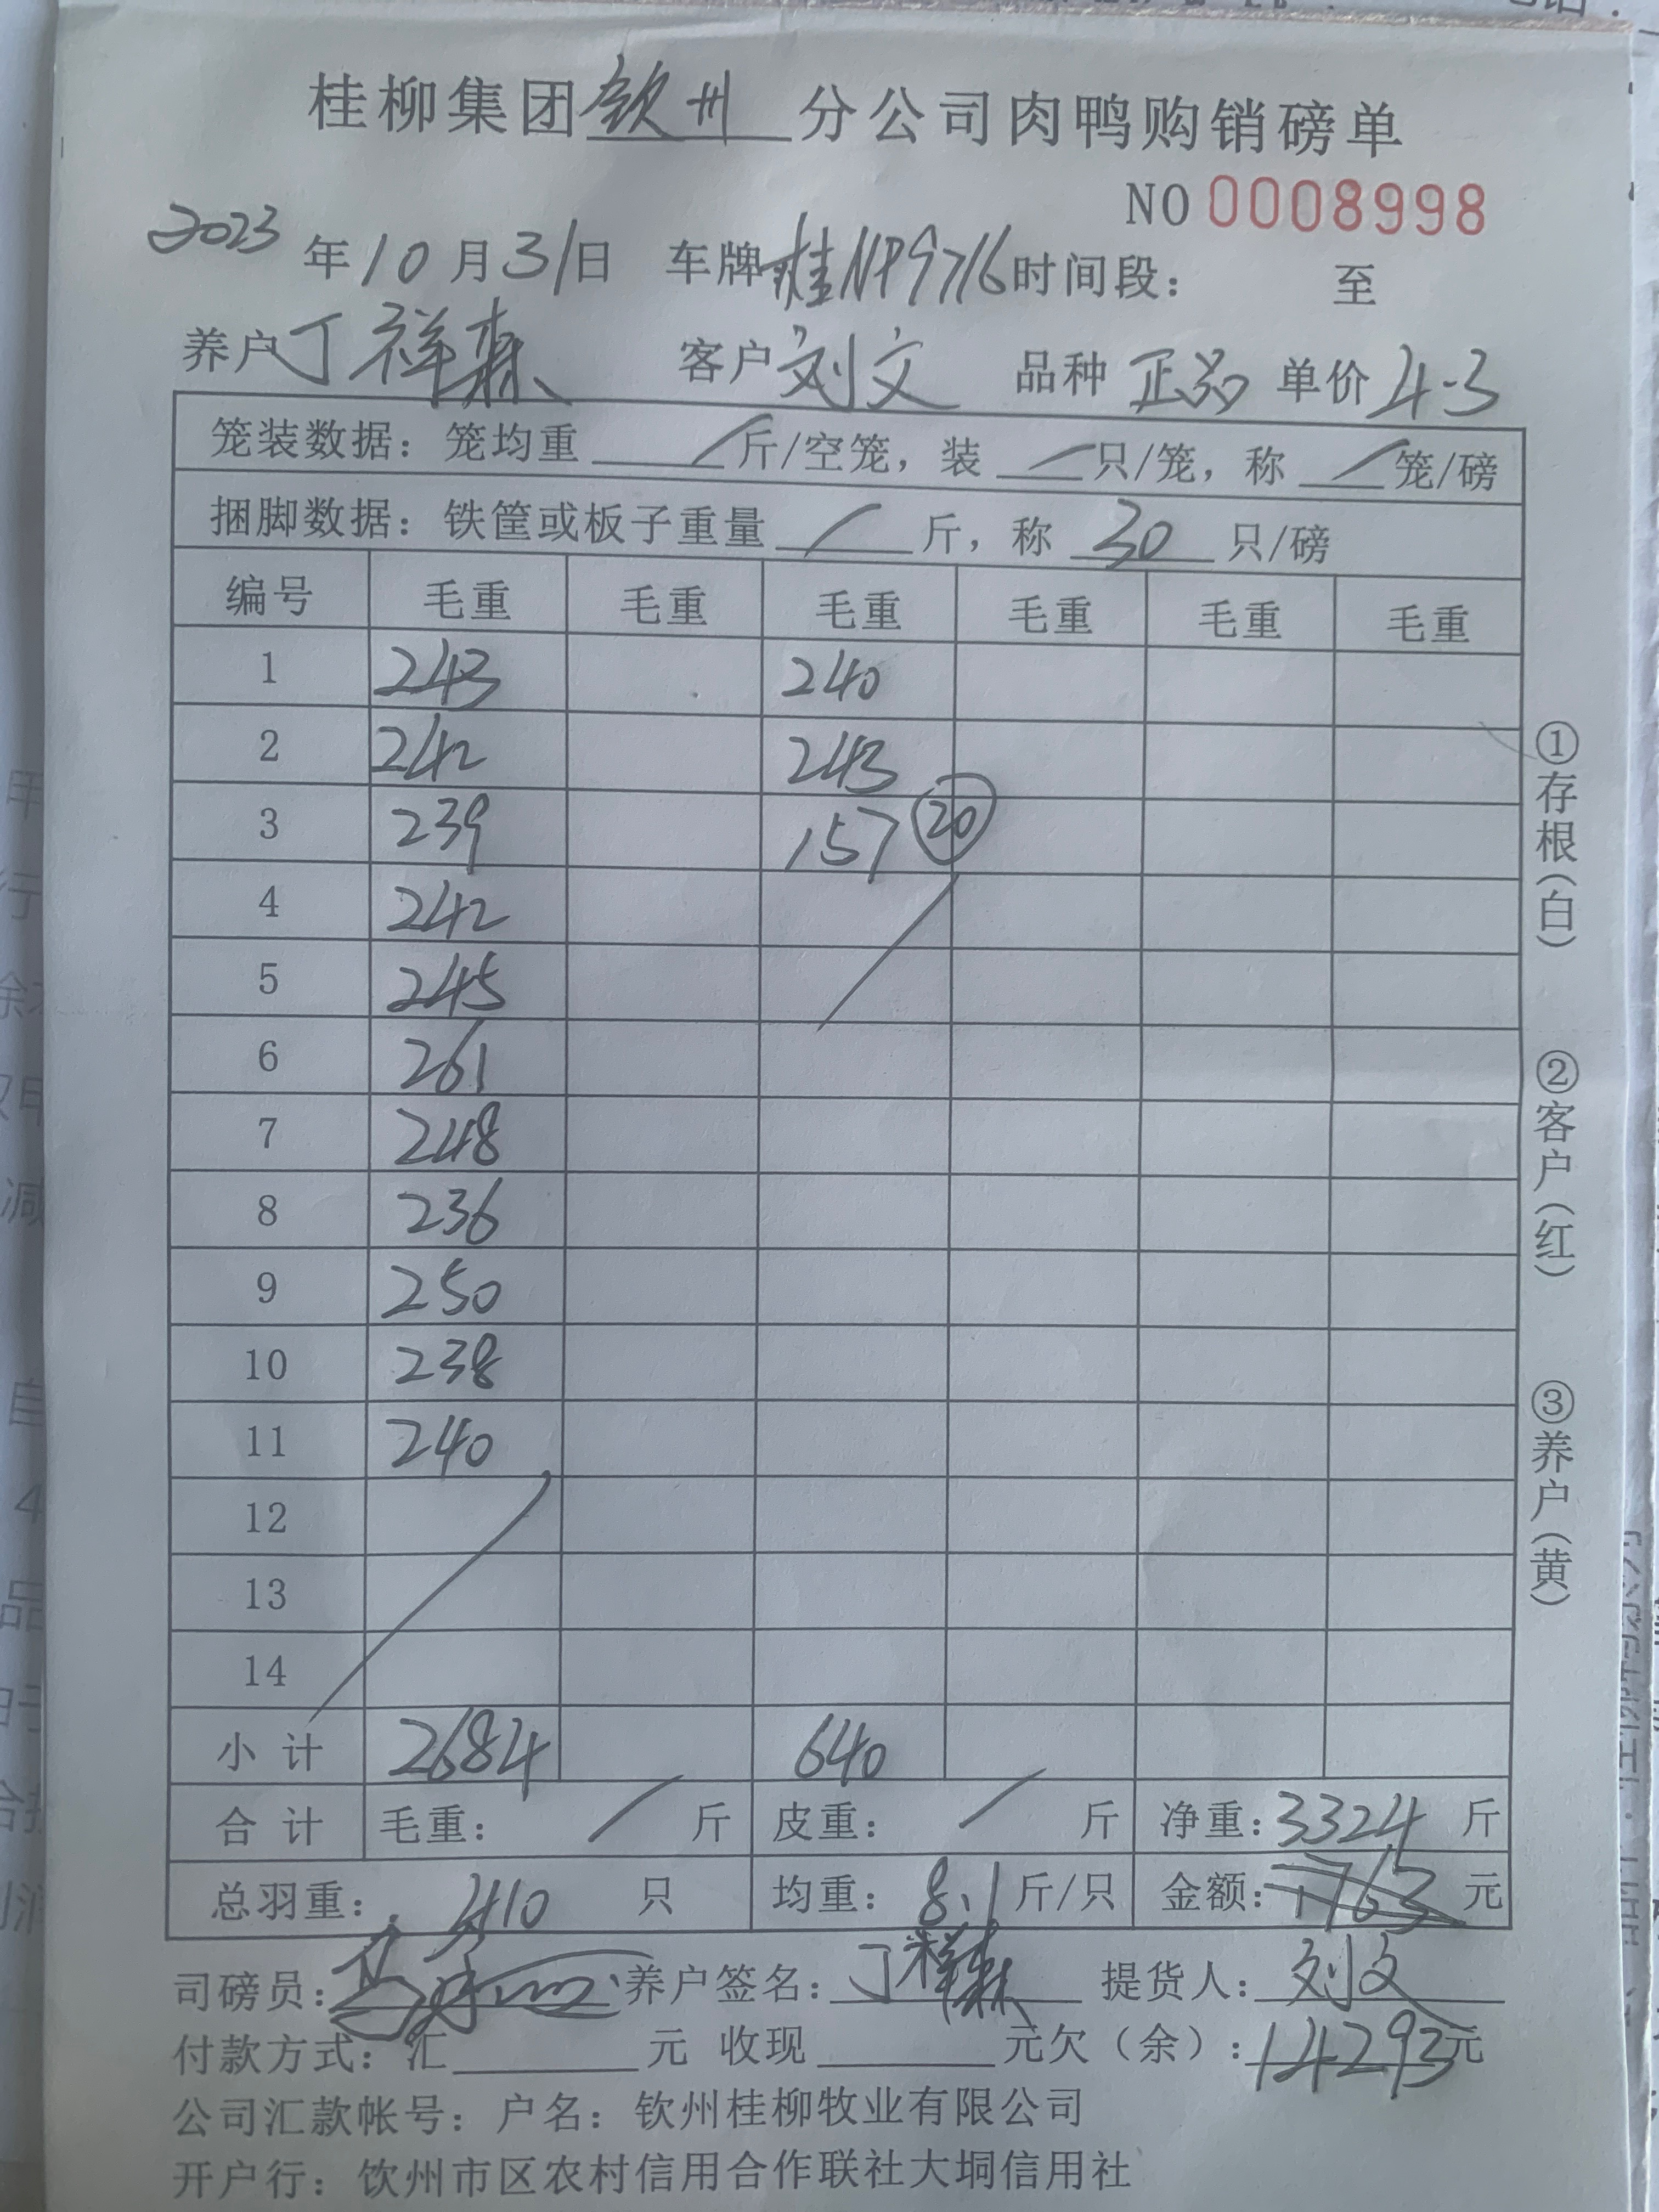 桂柳集团钦州分公司肉鸭购销磅单
NO 0008998
2023年10月31日 车牌桂NP9716时间段： 至
养户丁祥森 客户刘文 品种正品 单价4.3
笼装数据：笼均重/斤/空笼，装/只/笼，称/笼/磅
捆脚数据：铁筐或板子重量/斤，称30只/磅
编号 毛重 毛重 毛重 毛重 毛重 毛重
1 243 240
2 242 243
3 239 157 ⑳
4 242
5 245
6 261
7 248
8 236
9 250
10 238
11 240
12
13
14
小计 2684 640
合计 毛重：/斤 皮重：/斤 净重：3324斤
总羽重：410只 均重：8.1斤/只 金额：元
司磅员： 养户签名：丁祥森 提货人：刘文
付款方式：汇 元 收现 元欠（余）：14293元
公司汇款帐号：户名：钦州桂柳牧业有限公司
开户行：饮州市区农村信用合作联社大垌信用社
①存根（白）
②客户（红）
③养户（黄）